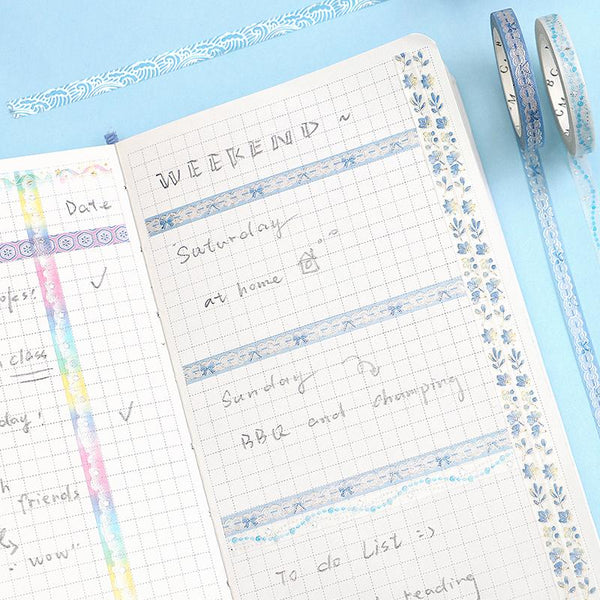 Date
class
day!
friends
"wow"
WEEKEND ~
Saturday
at home
Sunday
BBQ and champing
To do List :)
reading